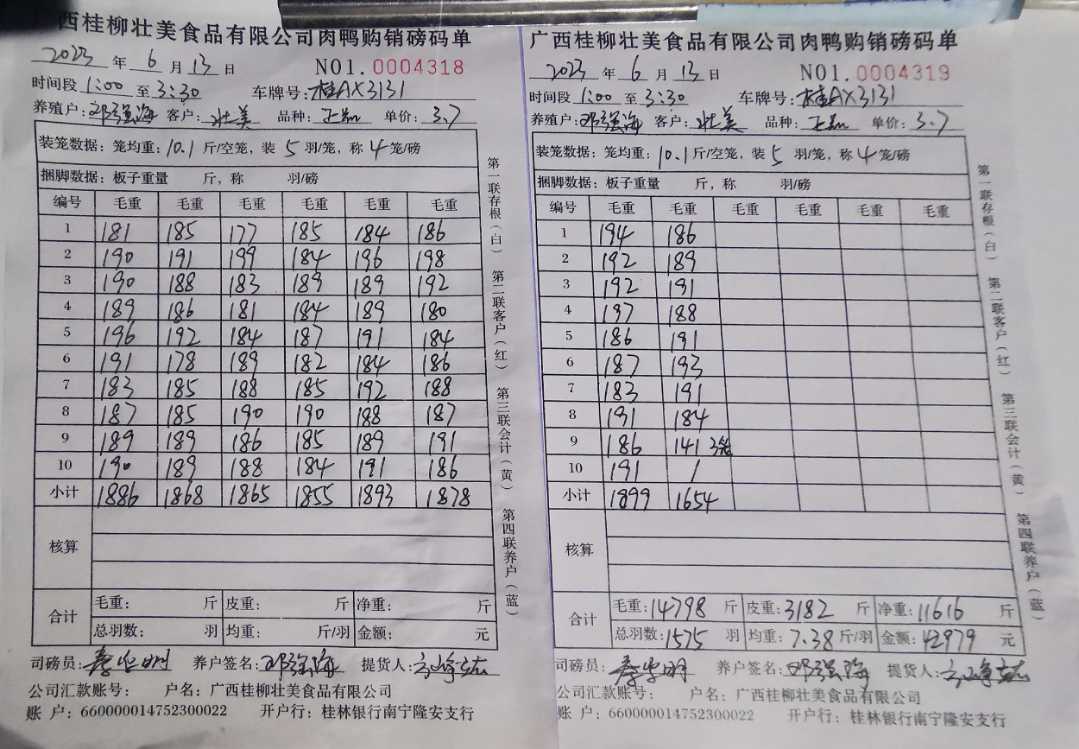 西桂柳壮美食品有限公司肉鸭购销磅码单
2023 年 6 月 13 日 NO1.0004318
时间段 1:00 至 3:30 车牌号: 桂AX3131
养殖户: 邓强海 客户: 壮美 品种: 正品 单价: 3.7
装笼数据: 笼均重: 10.1 斤/空笼, 装 5 羽/笼, 称 4 笼/磅
捆脚数据: 板子重量 斤, 称 羽/磅
编号 毛重 毛重 毛重 毛重 毛重 毛重
1 181 185 177 185 184 186
2 190 191 199 184 196 198
3 190 188 183 189 189 192
4 189 186 181 184 189 180
5 196 192 184 187 191 184
6 191 178 189 182 184 186
7 183 185 188 185 192 188
8 187 185 190 190 188 187
9 189 189 186 185 189 191
10 190 189 188 184 191 186
小计 1886 1868 1865 1855 1893 1878
核算
合计 毛重: 斤 皮重: 斤 净重: 斤
总羽数: 羽 均重: 斤/羽 金额: 元
司磅员: 养户签名: 邓强海 提货人:
公司汇款账号: 户名: 广西桂柳壮美食品有限公司
账 户: 660000014752300022 开户行: 桂林银行南宁隆安支行
第一联存根(白) 第二联客户(红) 第三联会计(黄) 第四联养户(蓝)
广西桂柳壮美食品有限公司肉鸭购销磅码单
2023 年 6 月 13 日 NO1.0004319
时间段 1:00 至 3:30 车牌号: 桂AX3131
养殖户: 邓强海 客户: 壮美 品种: 正品 单价: 3.7
装笼数据: 笼均重: 10.1 斤/空笼, 装 5 羽/笼, 称 4 笼/磅
捆脚数据: 板子重量 斤, 称 羽/磅
编号 毛重 毛重 毛重 毛重 毛重 毛重
1 194 186
2 192 189
3 192 191
4 197 188
5 186 191
6 187 193
7 183 191
8 191 184
9 186 141 3笼
10 191 /
小计 1899 1654
核算
合计 毛重: 14798 斤 皮重: 3182 斤 净重: 11616 斤
总羽数: 1575 羽 均重: 7.38 斤/羽 金额: 42979 元
司磅员: 养户签名: 邓强海 提货人:
公司汇款账号: 户名: 广西桂柳壮美食品有限公司
账 户: 660000014752300022 开户行: 桂林银行南宁隆安支行
第一联存根(白) 第二联客户(红) 第三联会计(黄) 第四联养户(蓝)